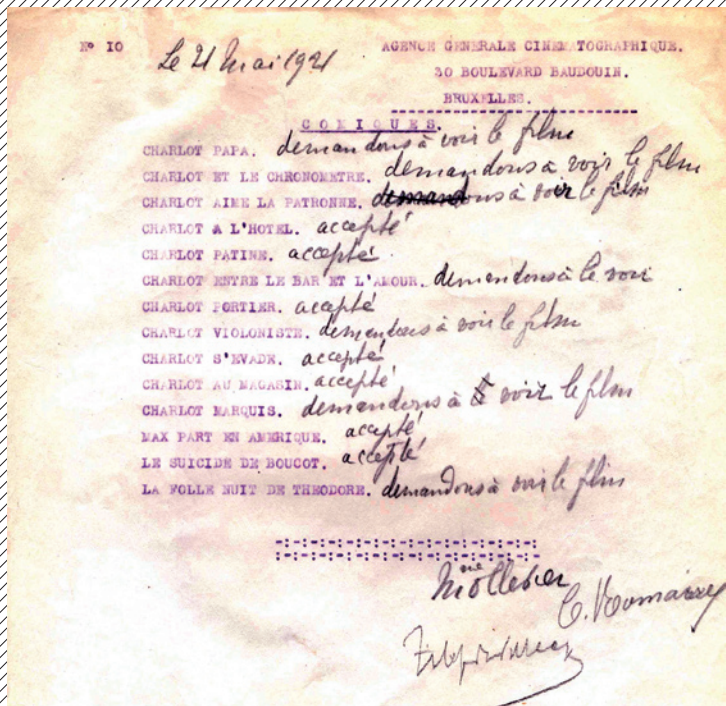 N° 10
Le 21 Mai 1921
AGENCE GENERALE CINEMATOGRAPHIQUE.
30 BOULEVARD BAUDOUIN.
BRUXELLES.
COMIQUES.
CHARLOT PAPA. demandons à voir le film
CHARLOT ET LE CHRONOMETRE. demandons à voir le film
CHARLOT AIME LA PATRONNE. demandons à voir le film
CHARLOT A L'HOTEL. accepté
CHARLOT PATINE. accepté
CHARLOT ENTRE LE BAR ET L'AMOUR. demandons à le voir
CHARLOT PORTIER. accepté
CHARLOT VIOLONISTE. demandons à voir le film
CHARLOT S'EVADE. accepté
CHARLOT AU MAGASIN. accepté
CHARLOT MARQUIS. demandons à voir le film
MAX PART EN AMERIQUE. accepté
LE SUICIDE DE BOUCOT. accepté
LA FOLLE NUIT DE THEODORE. demandons à voir le film